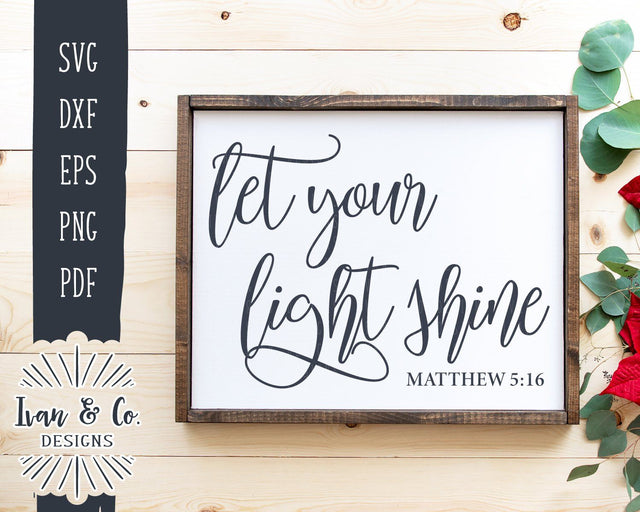 SVG
DXF
EPS
PNG
PDF
Ivan & Co.
DESIGNS
let your
light shine
MATTHEW 5:16